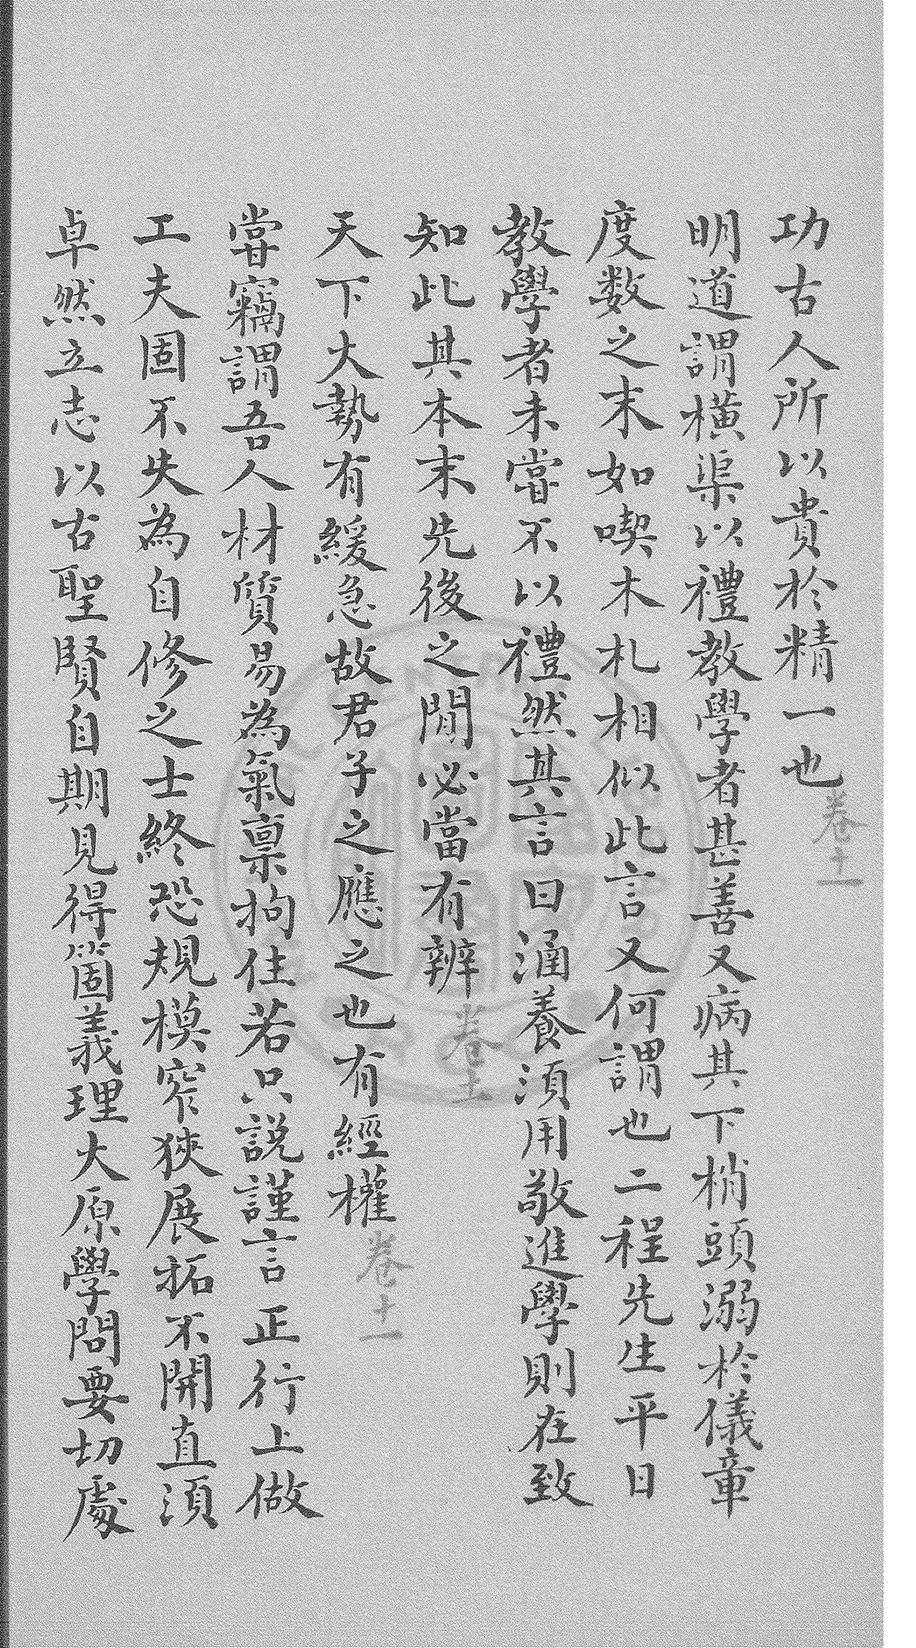 功古人所以貴於精一也卷十一
明道謂橫渠以禮教學者甚善又病其下梢頭溺於儀章
度数之末如喫木札相似此言又何謂也二程先生平日
教學者未甞不以禮然其言曰涵養湏用敬進學則在致
知此其本末先後之間必當有辨卷十一
天下大勢有緩急故君子之應之也有經權卷十一
甞竊謂吾人材質易為氣稟拘住若只說謹言正行上做
工夫固不失為自修之士終恐規模窄狹展拓不開直湏
卓然立志以古聖賢自期見得箇義理大原學問要切處